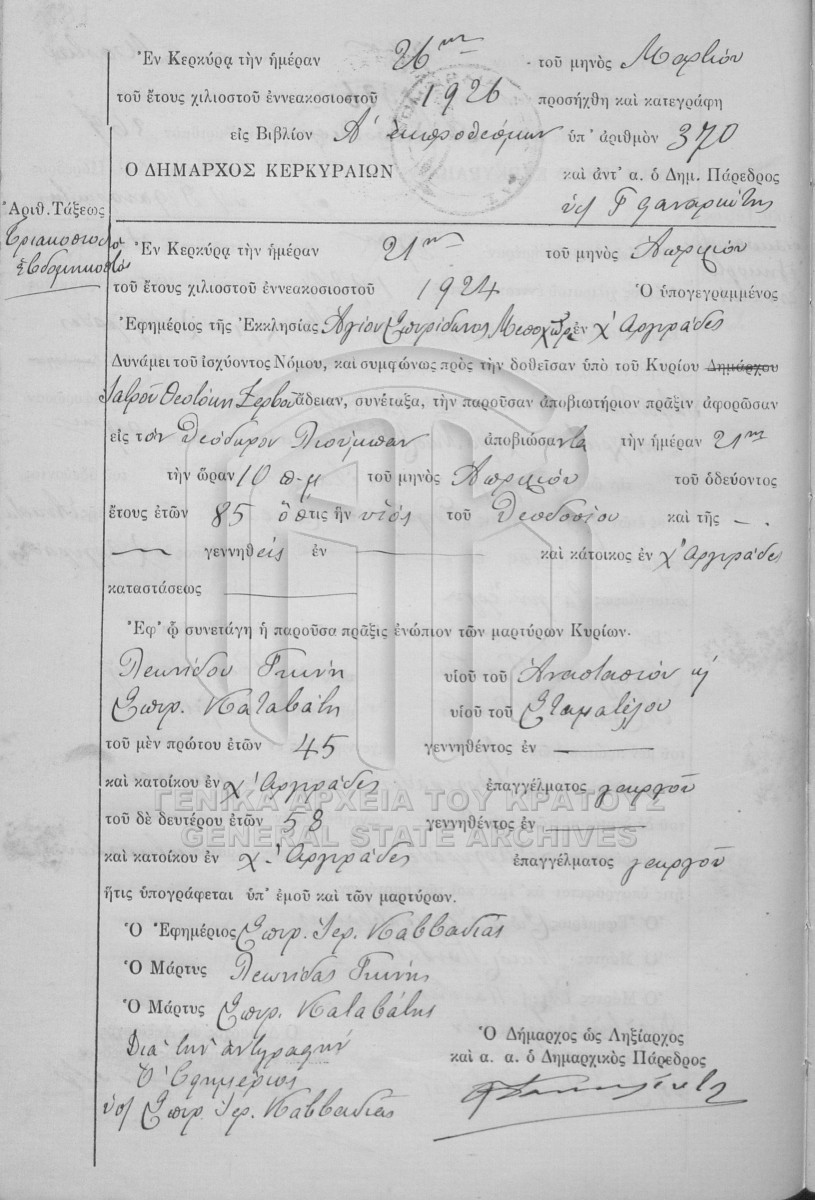 Ἐν Κερκύρᾳ τὴν ἡμέραν 26ην τοῦ μηνὸς Μαρτίου
τοῦ ἔτους χιλιοστοῦ ἐννεακοσιοστοῦ 1926 προσήχθη καὶ κατεγράφη
εἰς Βιβλίον Α' ἐκπροθέσμων ὑπ' ἀριθμὸν 370
Ο ΔΗΜΑΡΧΟΣ ΚΕΡΚΥΡΑΙΩΝ καὶ ἀντ' α. ὁ Δημ. Πάρεδρος
Ἀριθ. Τάξεως
Τριακοσιοστὸς
ἑβδομηκοστός
Ἐν Κερκύρᾳ τὴν ἡμέραν 21ην τοῦ μηνὸς Ἀπριλίου
τοῦ ἔτους χιλιοστοῦ ἐννεακοσιοστοῦ 1924 Ὁ ὑπογεγραμμένος
Ἐφημέριος τῆς Ἐκκλησίας Ἁγίου Σπυρίδωνος ἐν χ' Ἀργυράδες
Δυνάμει τοῦ ἰσχύοντος Νόμου, καὶ συμφώνως πρὸς τὴν δοθεῖσαν ὑπὸ τοῦ Κυρίου Δημάρχου
Ἰατροῦ Θεοτόκη Ζερβοῦ ἄδειαν, συνέταξα, τὴν παροῦσαν ἀποβιωτήριον πρᾶξιν ἀφορῶσαν
εἰς τὸν Θεόδωρον ἀποβιώσαντα τὴν ἡμέραν 21ην
τὴν ὥραν 10 π.μ τοῦ μηνὸς Ἀπριλίου τοῦ ὁδεύοντος
ἔτους ἐτῶν 85 ὅστις ἦν υἱός τοῦ Θεοδοσίου καὶ τῆς —
— γεννηθείς ἐν — καὶ κάτοικος ἐν χ' Ἀργυράδες
καταστάσεως —
Ἐφ' ᾧ συνετάγη ἡ παροῦσα πρᾶξις ἐνώπιον τῶν μαρτύρων Κυρίων.
Λεωνίδου Γκίνη υἱοῦ τοῦ Ἀναστασίου ἢ
Σπυρ. Καταβάτη υἱοῦ τοῦ Σταματέλου
τοῦ μὲν πρώτου ἐτῶν 45 γεννηθέντος ἐν —
καὶ κατοίκου ἐν χ' Ἀργυράδες ἐπαγγέλματος γεωργοῦ
ΓΕΝΙΚΑ ΑΡΧΕΙΑ ΤΟΥ ΚΡΑΤΟΥΣ
τοῦ δὲ δευτέρου ἐτῶν 58 γεννηθέντος ἐν —
GENERAL STATE ARCHIVES
καὶ κατοίκου ἐν χ. Ἀργυράδες ἐπαγγέλματος γεωργοῦ
ἥτις ὑπογράφεται ὑπ' ἐμοῦ καὶ τῶν μαρτύρων.
Ὁ Ἐφημέριος Σπυρ. Ἱερ. Καββαδίας
Ὁ Μάρτυς Λεωνίδας Γκίνης
Ὁ Μάρτυς Σπυρ. Καταβάτης
Διὰ τὴν ἀντιγραφὴν
Ὁ Ἐφημέριος
ὑπ Σπυρ. Ἱερ. Καββαδίας
Ὁ Δήμαρχος ὡς Ληξίαρχος
καὶ α. α. ὁ Δημαρχικὸς Πάρεδρος